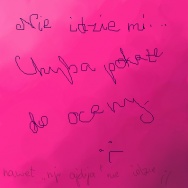 Nie idzie mi...
Chyba pokażę
do oceny.
:-(
nawet nie